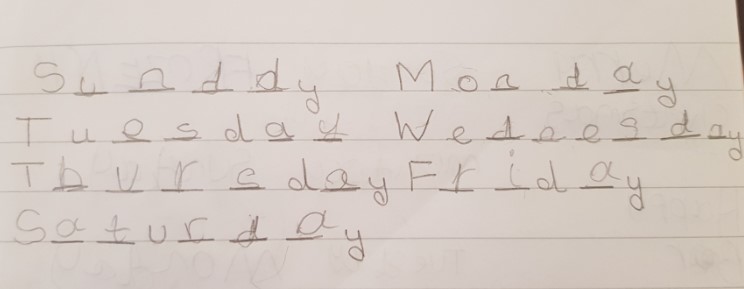 Sunddy Monday
Tuesday Wedeesday
Thursday Friday
Saturday